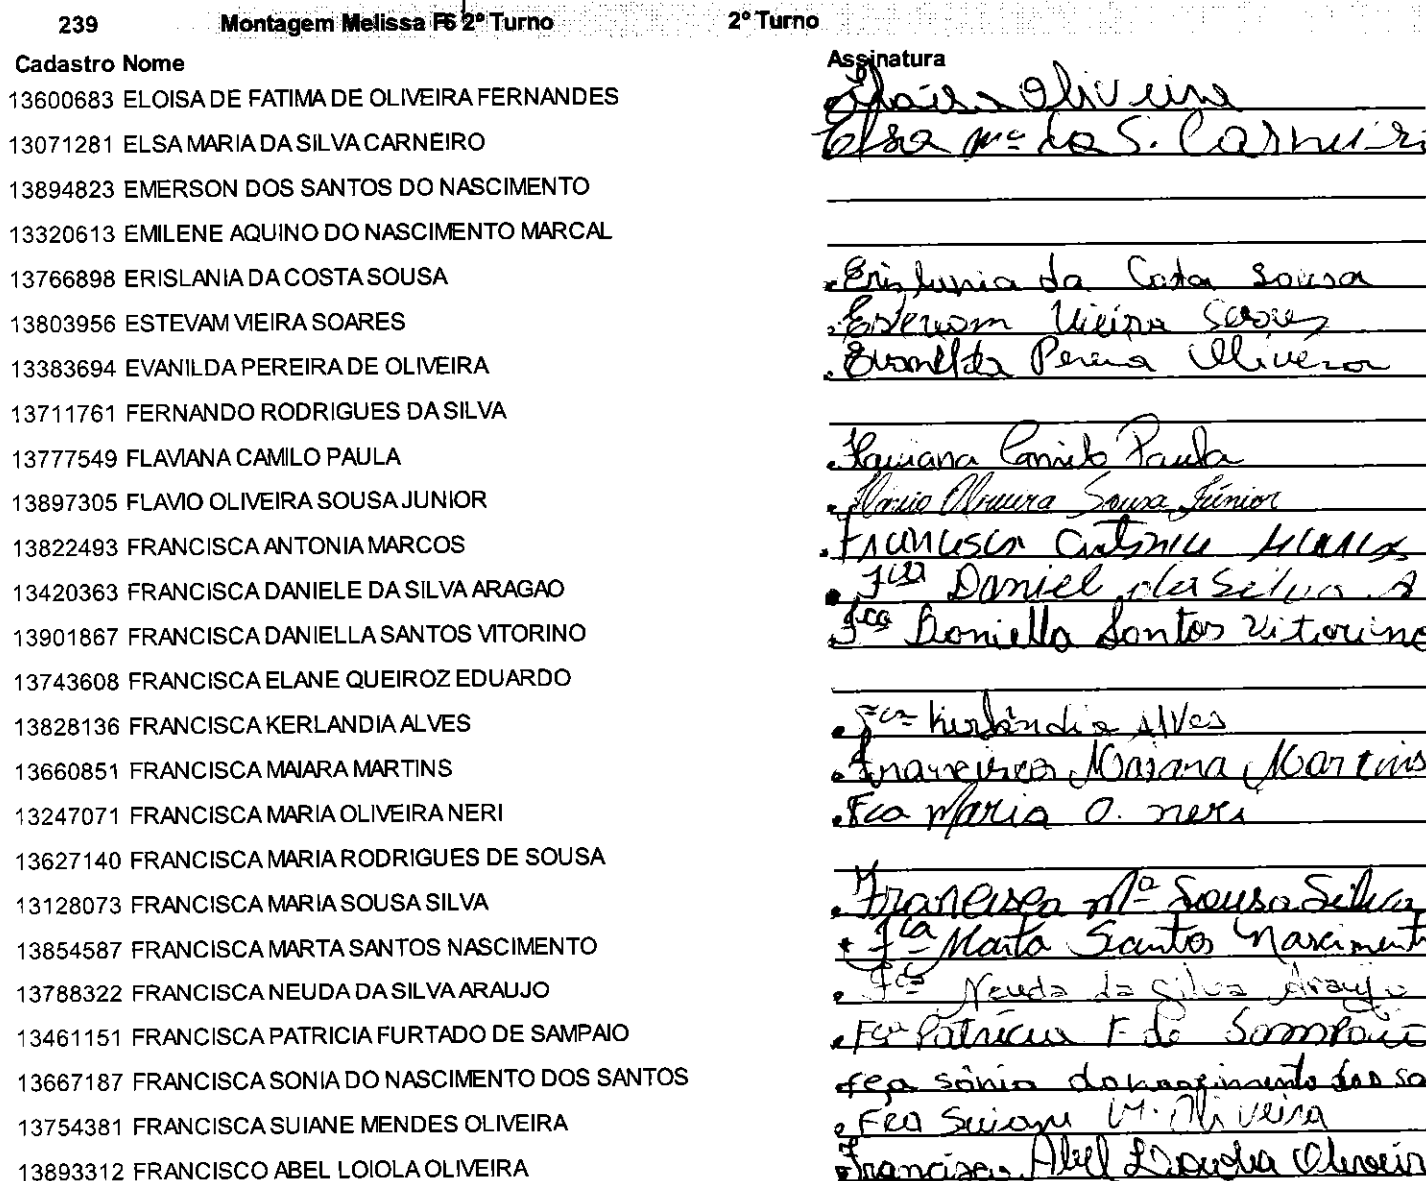 239 Montagem Melissa F6 2º Turno 2º Turno
Cadastro Nome Assinatura
13600683 ELOISA DE FATIMA DE OLIVEIRA FERNANDES Oliveira
13071281 ELSA MARIA DA SILVA CARNEIRO Elsa Mª da S. Carneiro
13894823 EMERSON DOS SANTOS DO NASCIMENTO
13320613 EMILENE AQUINO DO NASCIMENTO MARCAL
13766898 ERISLANIA DA COSTA SOUSA Erislania da Costa Sousa
13803956 ESTEVAM VIEIRA SOARES Estevam Vieira Soares
13383694 EVANILDA PEREIRA DE OLIVEIRA Evanilda Pereira Oliveira
13711761 FERNANDO RODRIGUES DA SILVA
13777549 FLAVIANA CAMILO PAULA Flaviana Camilo Paula
13897305 FLAVIO OLIVEIRA SOUSA JUNIOR Flavio Oliveira Sousa Júnior
13822493 FRANCISCA ANTONIA MARCOS Francisca Antonia Marcos
13420363 FRANCISCA DANIELE DA SILVA ARAGAO Fca Daniel da Silva A
13901867 FRANCISCA DANIELLA SANTOS VITORINO Fca Daniella Santos Vitorino
13743608 FRANCISCA ELANE QUEIROZ EDUARDO
13828136 FRANCISCA KERLANDIA ALVES Fca Kerlândia Alves
13660851 FRANCISCA MAIARA MARTINS Francisca Maiara Martins
13247071 FRANCISCA MARIA OLIVEIRA NERI Fca Maria O. neri
13627140 FRANCISCA MARIA RODRIGUES DE SOUSA
13128073 FRANCISCA MARIA SOUSA SILVA Francisca Mª Sousa Silva
13854587 FRANCISCA MARTA SANTOS NASCIMENTO Fca Marta Santos Nascimento
13788322 FRANCISCA NEUDA DA SILVA ARAUJO Fca Neuda da Silva Araujo
13461151 FRANCISCA PATRICIA FURTADO DE SAMPAIO Fca Patrícia F de Sampaio
13667187 FRANCISCA SONIA DO NASCIMENTO DOS SANTOS fca sônia do nascimento dos sa
13754381 FRANCISCA SUIANE MENDES OLIVEIRA Fca Suiane M. Oliveira
13893312 FRANCISCO ABEL LOIOLA OLIVEIRA Francisco Abel Oliveira